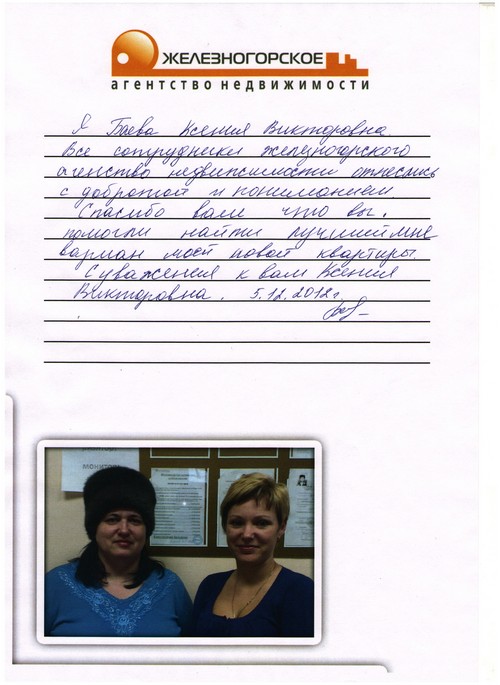 ЖЕЛЕЗНОГОРСКОЕ
агентство недвижимости
Я Баева Ксения Викторовна
Все сотрудники железногорского
агенство недвижимости отнеслись
с добротой и пониманием
Спасибо вам что вы.
помогли найти лучший мне
вариан моей новой квартиры.
С уважения к вам Ксения
Викторовна. 5.12.2012г.